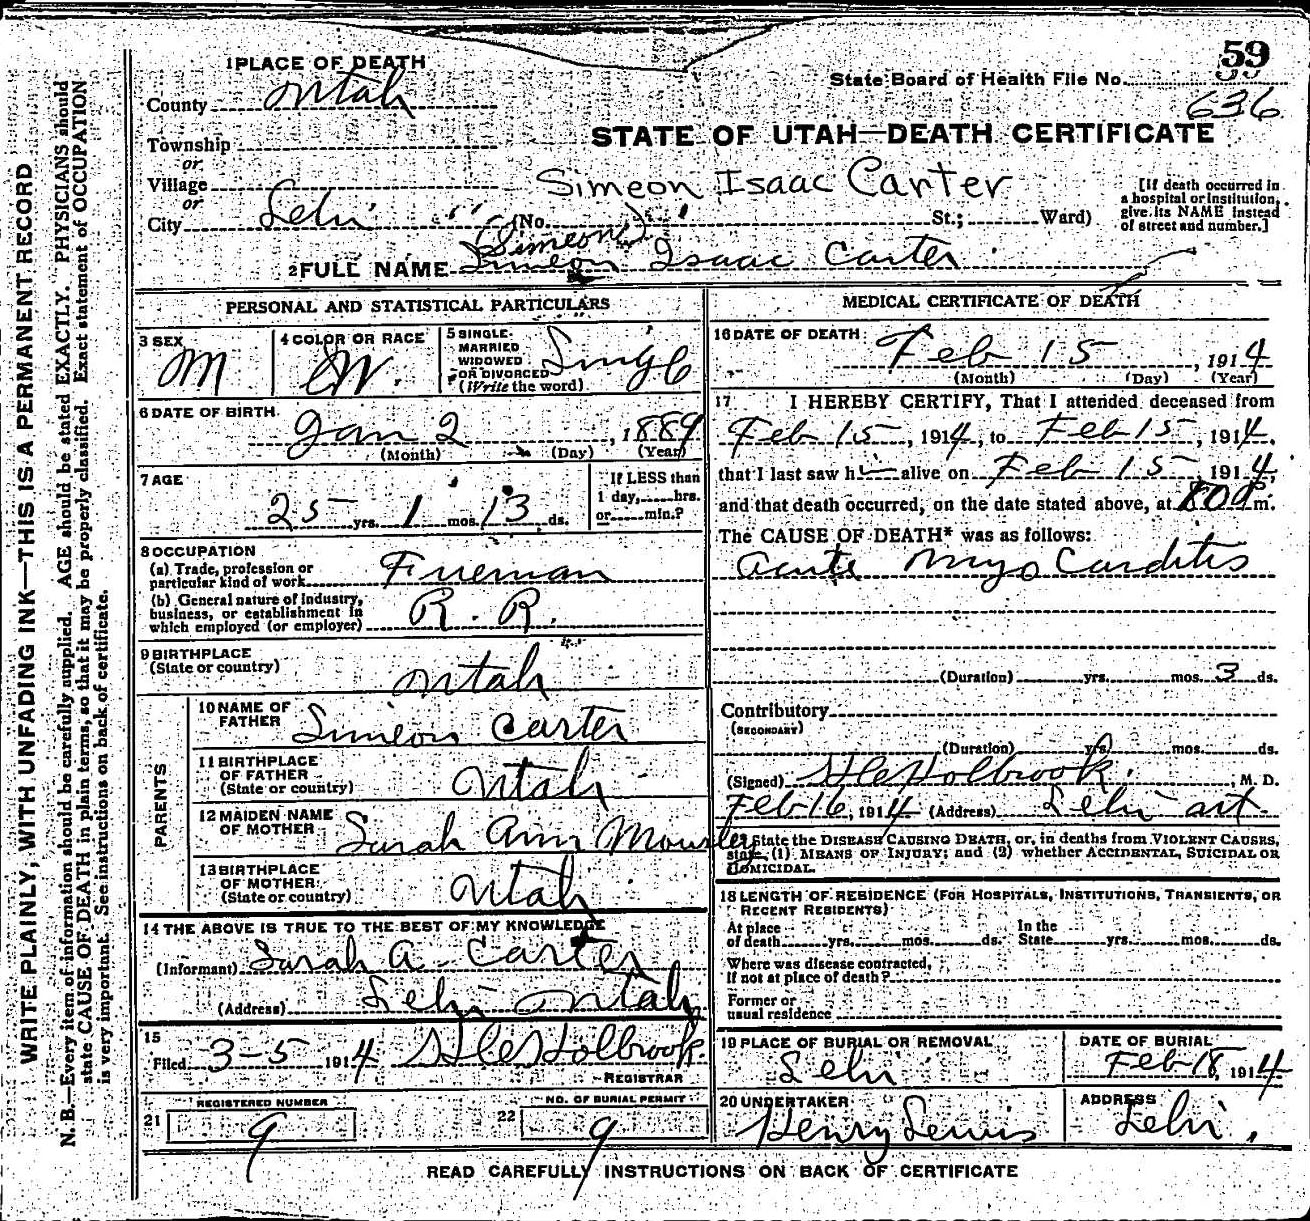 59
State Board of Health File No.
636
1 PLACE OF DEATH
County Utah
STATE OF UTAH—DEATH CERTIFICATE
Township
or
Village
or
City Lehi (No. St.; Ward)
Simeon Isaac Carter
[If death occurred in
a hospital or institution,
give its NAME instead
of street and number.]
(Simeon)
2 FULL NAME Simeon Isaac Carter
PERSONAL AND STATISTICAL PARTICULARS
3 SEX
M
4 COLOR OR RACE
W.
5 SINGLE
MARRIED
WIDOWED
OR DIVORCED
(Write the word)
Single
6 DATE OF BIRTH
Jan 2, 1889
(Month) (Day) (Year)
7 AGE
25 yrs. 1 mos. 13 ds.
If LESS than
1 day, hrs.
or min.?
8 OCCUPATION
(a) Trade, profession or
particular kind of work Fireman
(b) General nature of industry,
business, or establishment in
which employed (or employer) R. R.
9 BIRTHPLACE
(State or country)
Utah
PARENTS
10 NAME OF
FATHER Simeon Carter
11 BIRTHPLACE
OF FATHER
(State or country) Utah
12 MAIDEN NAME
OF MOTHER Sarah Ann
13 BIRTHPLACE
OF MOTHER
(State or country) Utah
14 THE ABOVE IS TRUE TO THE BEST OF MY KNOWLEDGE
(Informant) Sarah A. Carter
(Address) Lehi Utah
15
Filed 3-5 1914 Holbrook
REGISTRAR
21 REGISTERED NUMBER
9
22 NO. OF BURIAL PERMIT
9
MEDICAL CERTIFICATE OF DEATH
16 DATE OF DEATH
Feb 15, 1914
(Month) (Day) (Year)
17 I HEREBY CERTIFY, That I attended deceased from
Feb 15, 1914, to Feb 15, 1914,
that I last saw h alive on Feb 15 1914,
and that death occurred, on the date stated above, at m.
The CAUSE OF DEATH* was as follows:
acute myo Carditis
(Duration) yrs. mos. 3 ds.
Contributory
(SECONDARY)
(Duration) yrs. mos. ds.
(Signed) Holbrook. M. D.
Feb 16, 1914 (Address) Lehi
*State the DISEASE CAUSING DEATH, or, in deaths from VIOLENT CAUSES,
state (1) MEANS OF INJURY; and (2) whether ACCIDENTAL, SUICIDAL OR
HOMICIDAL.
18 LENGTH OF RESIDENCE (FOR HOSPITALS, INSTITUTIONS, TRANSIENTS, OR
RECENT RESIDENTS)
At place In the
of death yrs. mos. ds. State yrs. mos. ds.
Where was disease contracted,
If not at place of death?
Former or
usual residence
19 PLACE OF BURIAL OR REMOVAL
Lehi
DATE OF BURIAL
Feb 18, 1914
20 UNDERTAKER
Henry Lewis
ADDRESS
Lehi.
READ CAREFULLY INSTRUCTIONS ON BACK OF CERTIFICATE
WRITE PLAINLY, WITH UNFADING INK—THIS IS A PERMANENT RECORD
N. B.—Every item of information should be carefully supplied. AGE should be stated EXACTLY. PHYSICIANS should
state CAUSE OF DEATH in plain terms, so that it may be properly classified. Exact statement of OCCUPATION
is very important. See instructions on back of certificate.